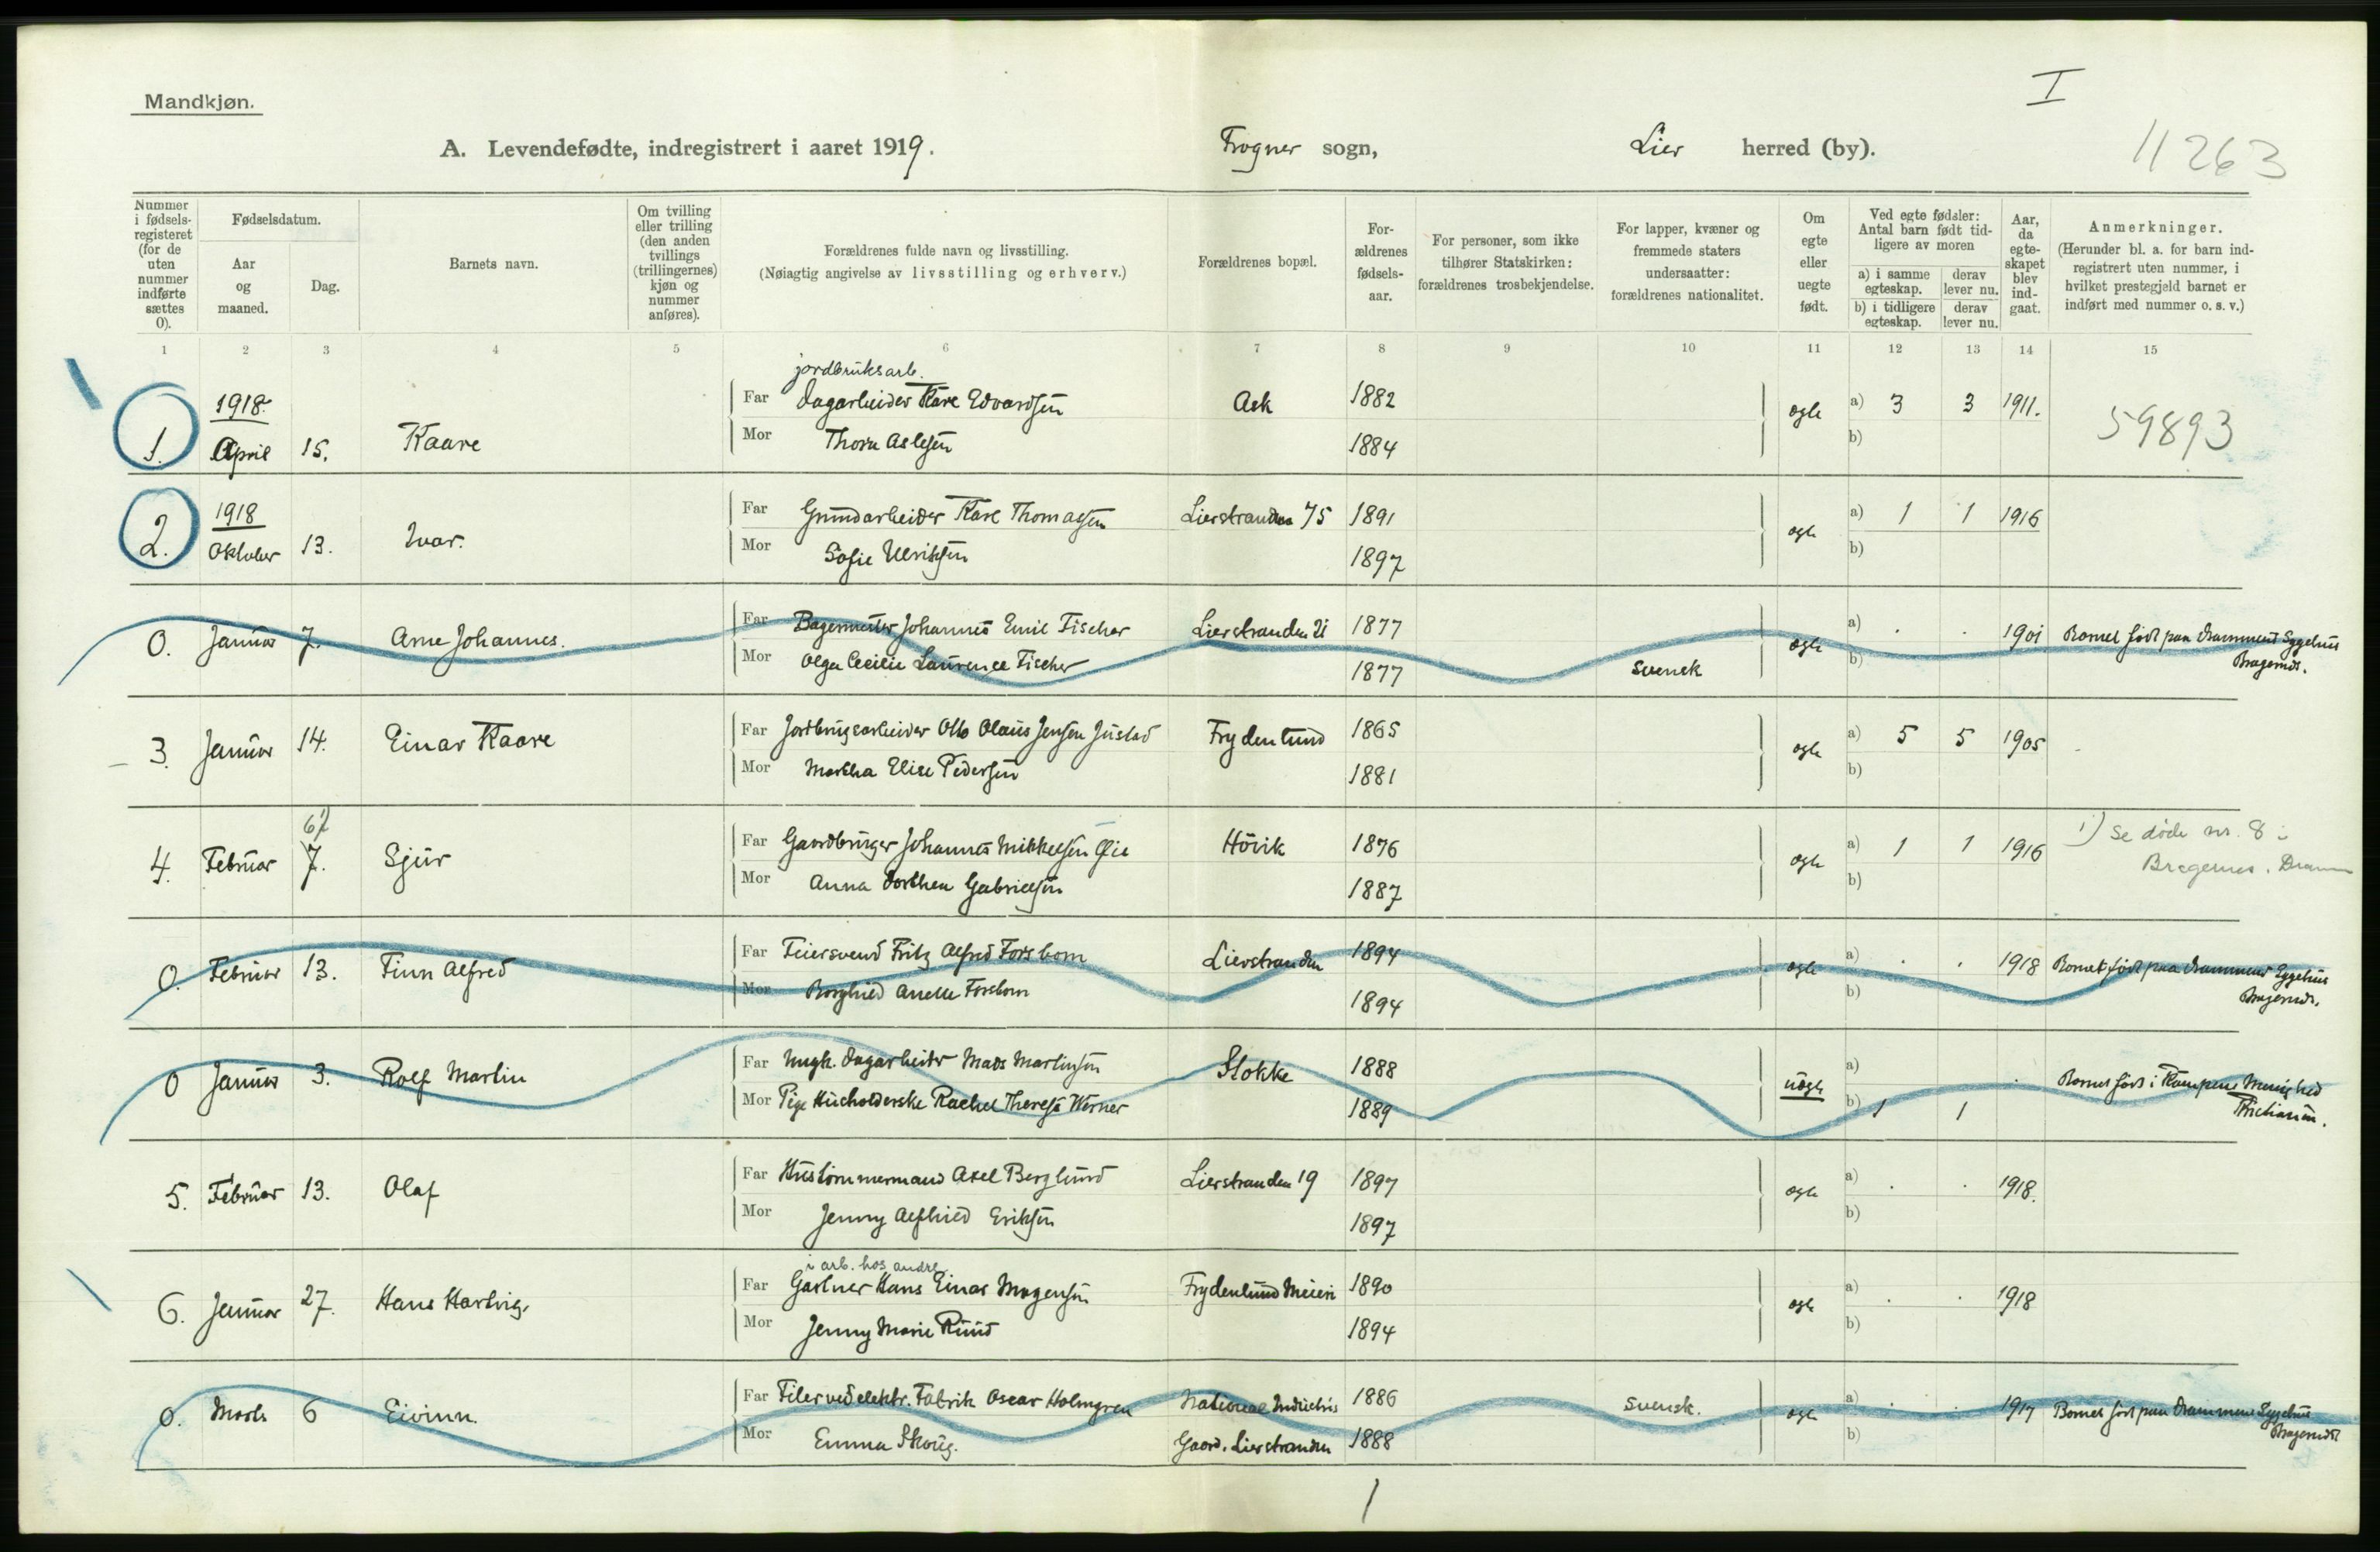 I
Mandkjøn.
A. Levendefødte, indregistrert i aaret 1919. Frogner sogn, Lier herred (by).
11263
Nummer i fødsels-registeret (for de uten nummer indførte sættes 0).
Fødselsdatum.
Aar og maaned.
Dag.
Barnets navn.
Om tvilling eller trilling (den anden tvillings (trillingernes) kjøn og nummer anføres).
Forældrenes fulde navn og livsstilling.
(Nøiagtig angivelse av livsstilling og erhverv.)
Forældrenes bopæl.
For-ældrenes fødsels-aar.
For personer, som ikke tilhører Statskirken: forældrenes trosbekjendelse.
For lapper, kvæner og fremmede staters undersaatter: forældrenes nationalitet.
Om egte eller uegte født.
Ved egte fødsler: Antal barn født tid-ligere av moren
a) i samme egteskap. derav lever nu.
b) i tidligere egteskap. derav lever nu.
Aar, da egte-skapet blev ind-gaat.
Anmerkninger.
(Herunder bl. a. for barn ind-registrert uten nummer, i hvilket prestegjeld barnet er indført med nummer o. s. v.)
1 2 3 4 5 6 7 8 9 10 11 12 13 14 15
jordbruksarb.
1. 1918. April 15. Kaare Far Dagarbeider Kare Edvardsen Ask 1882 egte a) 3 3 1911. 59893
Mor Thora Aslesen 1884 b)
2. 1918 Oktober 13. Ivar. Far Grundarbeider Karl Thomassen Lierstranden 75 1891 egte a) 1 1 1916
Mor Sofie Ulriksen 1897 b)
0. Januar 7. Arne Johannes. Far Bagermester Johannes Emil Fischer Lierstranden 21 1877 egte a) . . 1901 Barnet født paa Drammens Sygehus
Mor Olga Cecilie Laurence Fischer 1877 svensk b) Bragernes.
3. Januar 14. Einar Kaare Far Jordbrugsarbeider Otto Olaus Jensen Justad Frydenlund 1865 egte a) 5 5 1905
Mor Martha Elise Pedersen 1881 b)
6 1)
4. Februar 7. Sjur Far Gaardbruger Johannes Mikkelsen Gjie Hövik 1876 egte a) 1 1 1916 1) Se døde nr. 8 i
Mor Anna Dorthea Gabrielsen 1887 b) Bragernes. Dramm
0. Februar 13. Finn Alfred Far Feiersvend Fritz Alfred Forsbom Lierstranden 1894 egte a) . . 1918 Barnet født paa Drammens Sygehus
Mor Borghild Anette Forsbom 1894 b) Bragernes.
0 Januar 3. Rolf Martin Far Ungk. Dagarbeider Mads Martinsen Stokke 1888 uegte a) . Barnet født i Kampens Menighed
Mor Pige Husholderske Rachel Theresa Werner 1889 b) 1 1 Kristiania.
5. Februar 13. Olaf Far Hustömmermand Axel Berglund Lierstranden 19 1897 egte a) . . 1918.
Mor Jenny Alfhild Eriksen 1897 b)
i arb. hos andre
6. Januar 27. Hans Hartvig. Far Gartner Hans Einar Mogensen Frydenlund Meieri 1890 egte a) . . 1918
Mor Jenny Marie Ruud 1894 b)
0. Marts 6 Eivinn. Far Filer ved elektr. Fabrik Oscar Holmgren National Industris 1886 svensk. egte a) . . 1917 Barnet født paa Drammens Sygehus
Mor Emma Skoug. Gaard. Lierstranden 1888 b) Bragernes.
1